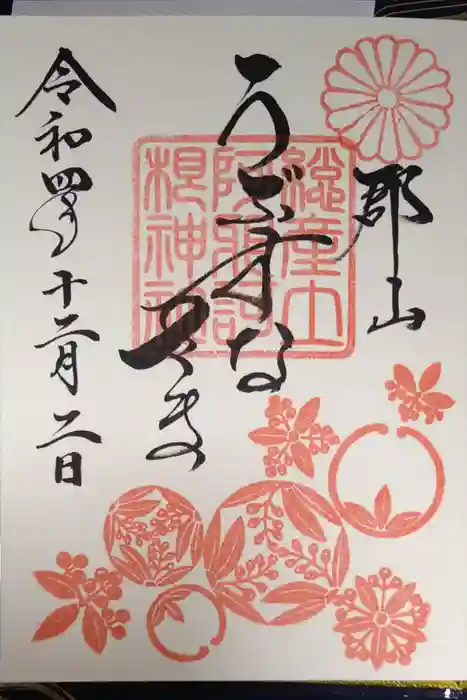 郡山
うぶすな
さま
総産土
阿邪訶
根神社
令和四年十二月二日